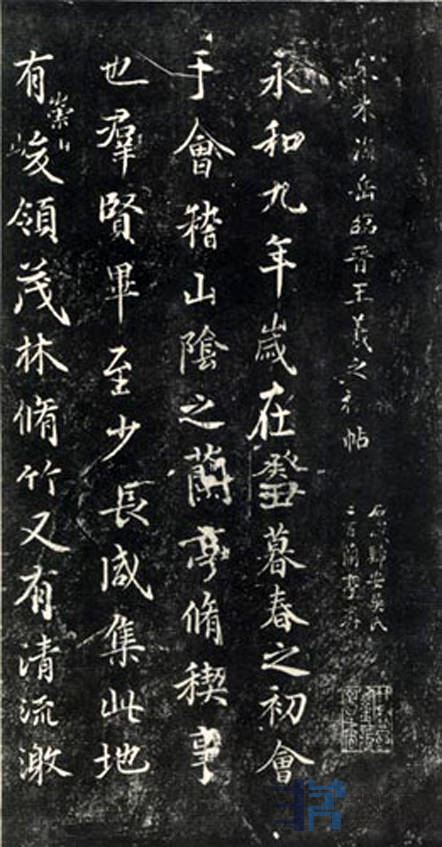 宋米海岳臨晉王羲之禊帖
石藏歸安吳氏
二百蘭亭齋
永和九年歲在癸丑暮春之初會
于會稽山陰之蘭亭脩稧事
也羣賢畢至少長咸集此地
有崇山峻領茂林脩竹又有清流激